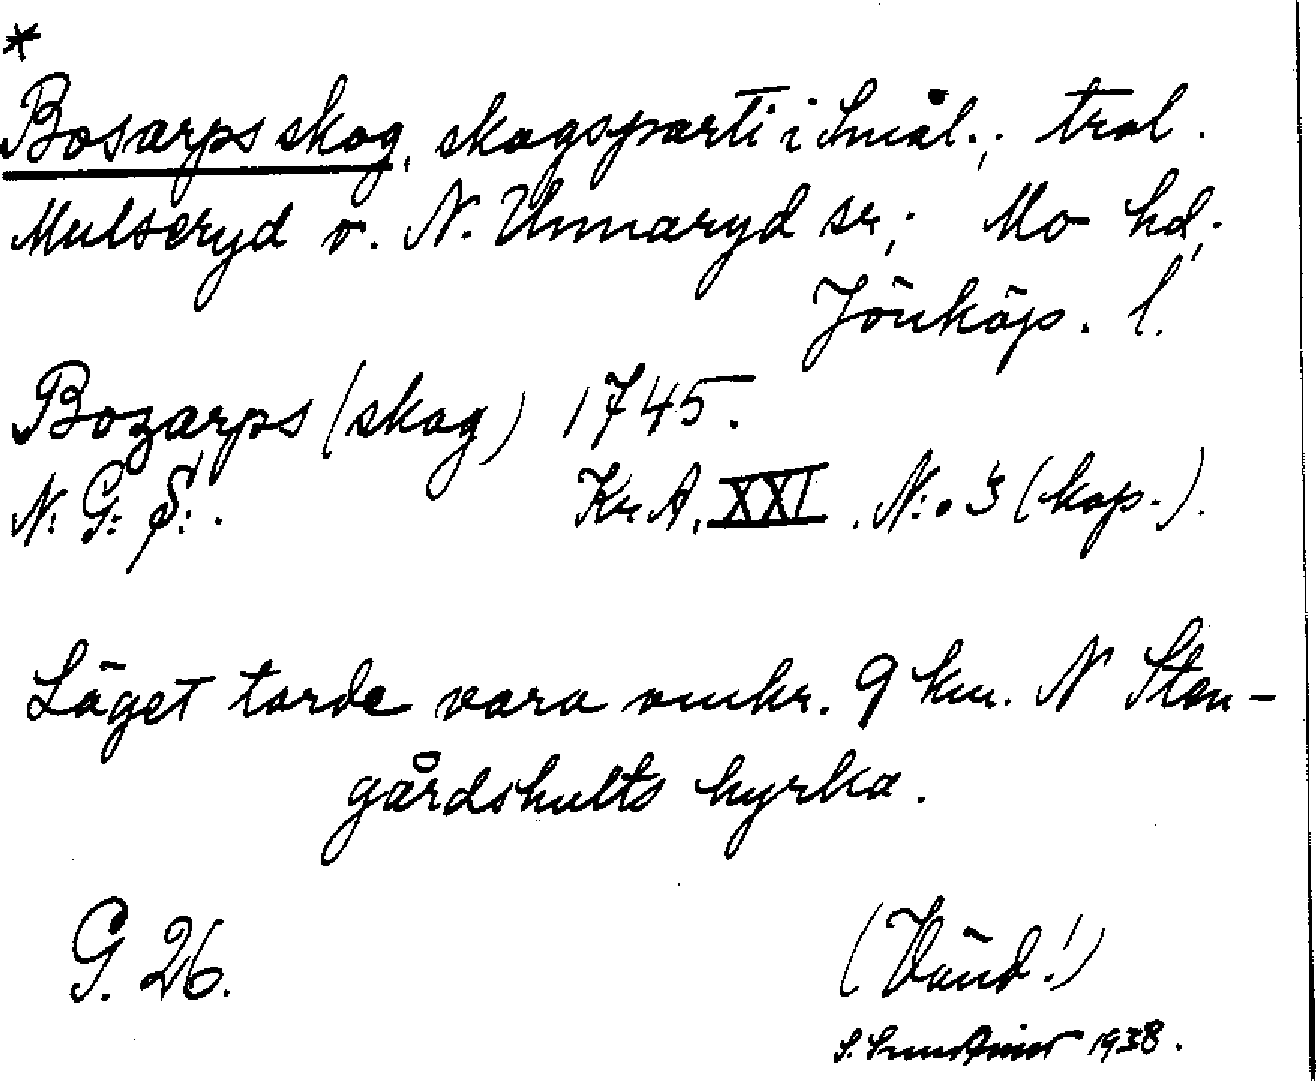 *
Bosarps skog, skogsparti i Smål.; trol.
Mulseryd o. N. Unnaryd sr; Mo hd;
Jönköp. l.
Bozarps (skog) 1745.
N: G: S:. Kr. A. XXI. N:o 3 (kop.).
Läget torde vara omkr. 9 km. N Sten-
gårdshults kyrka.
G. 26. (Vänd!)
S. 1938.